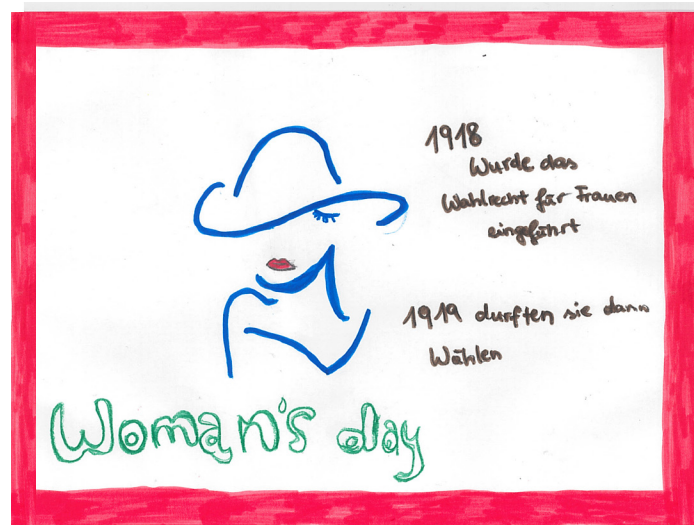 1918
Wurde das
Wahlrecht für Frauen
eingeführt
1919 durften sie dann
Wählen
Woman's day